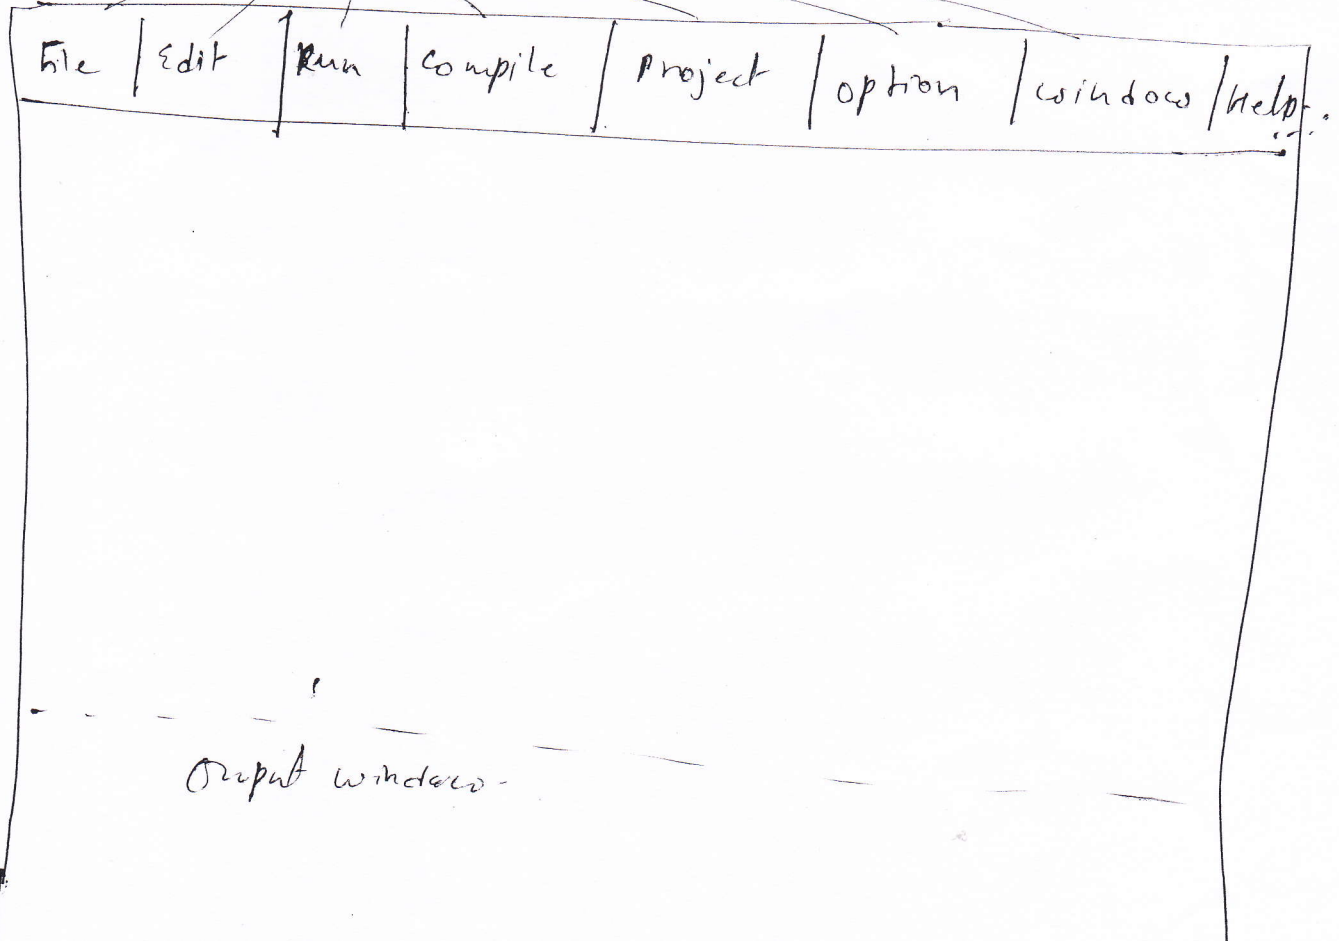 File | Edit | Run | Compile | Project | option | window | Help
Output window